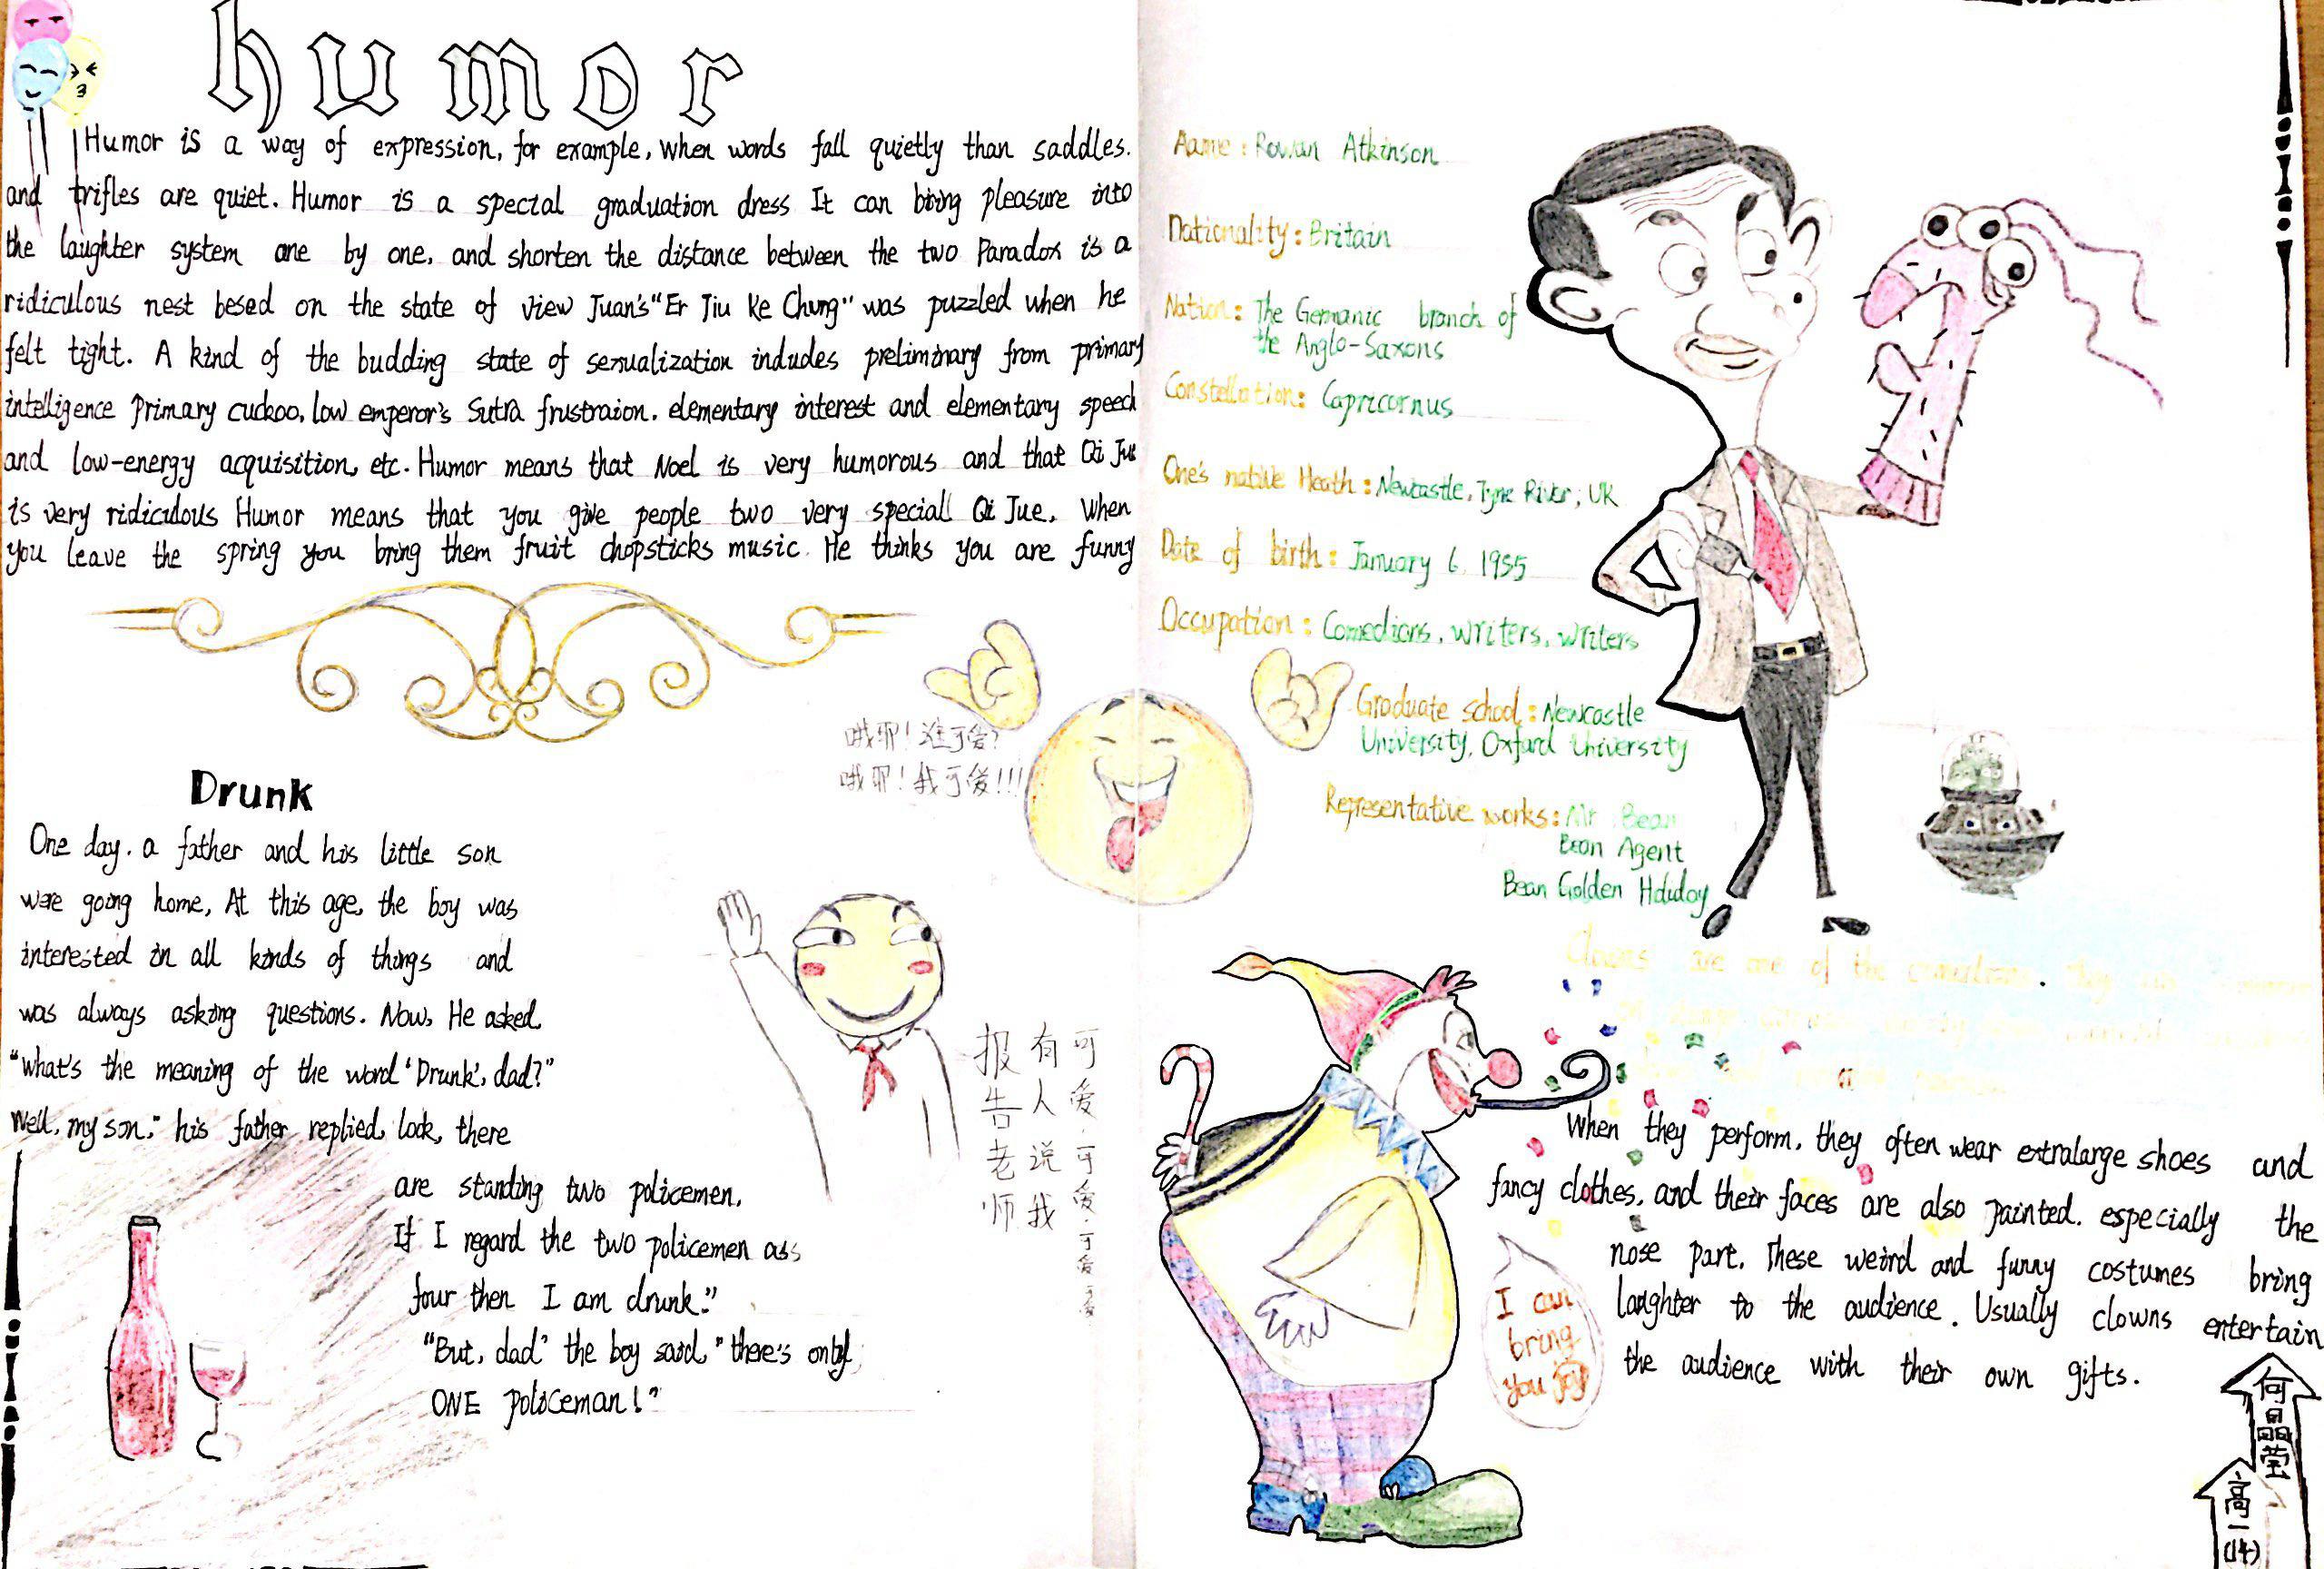 humor
Humor is a way of expression, for example, when words fall quietly than saddles.
and trifles are quiet. Humor is a special graduation dress It can bring pleasure into
the laughter system one by one, and shorten the distance between the two Paradox is a
ridiculous nest besed on the state of view Juan's "Er Jiu Ke Chung" was puzzled when he
felt tight. A kind of the budding state of sexualization indudes preliminary from primary
intelligence primary cuckoo, low emperor's Sutra frustraion. elementary interest and elementary speech
and low-energy acquisition, etc. Humor means that Noel is very humorous and that Qi Jue
is very ridiculous Humor means that you give people two very special Qi Jue, When
you leave the spring you bring them fruit chopsticks music. He thinks you are funny
哦耶!谁可爱?
哦耶!我可爱!!!
Drunk
One day. a father and his little son
were going home, At this age, the boy was
interested in all kinds of things and
was always asking questions. Now, He asked
"What's the meaning of the word 'Drunk', dad?"
Well, my son." his father replied, look, there
are standing two policemen.
If I regard the two policemen ass
four then I am drunk."
"But, dad" the boy said, "there's only
ONE policeman!"
报告老师
有人说我
可爱,可爱,可爱可爱
Aame: Rowan Atkinson
Nationality: Britain
Nation: The Germanic branch of
the Anglo-Saxons
Constellation: Capricornus
One's native Heath: Newcastle, Tyne River, UK
Date of birth: January 6, 1955
Occupation: Comedians, writers, writers
Graduate school: Newcastle
University, Oxford University
Representative works: Mr Bean
Bean Agent
Bean Golden Holiday
Clowns are one of the comedians.
When they perform, they often wear extralarge shoes and
fancy clothes, and their faces are also painted. especially the
nose part. These weird and funny costumes bring
laughter to the audience. Usually clowns entertain
the audience with their own gifts.
I can
bring
you joy
何晶莹
高一(14)